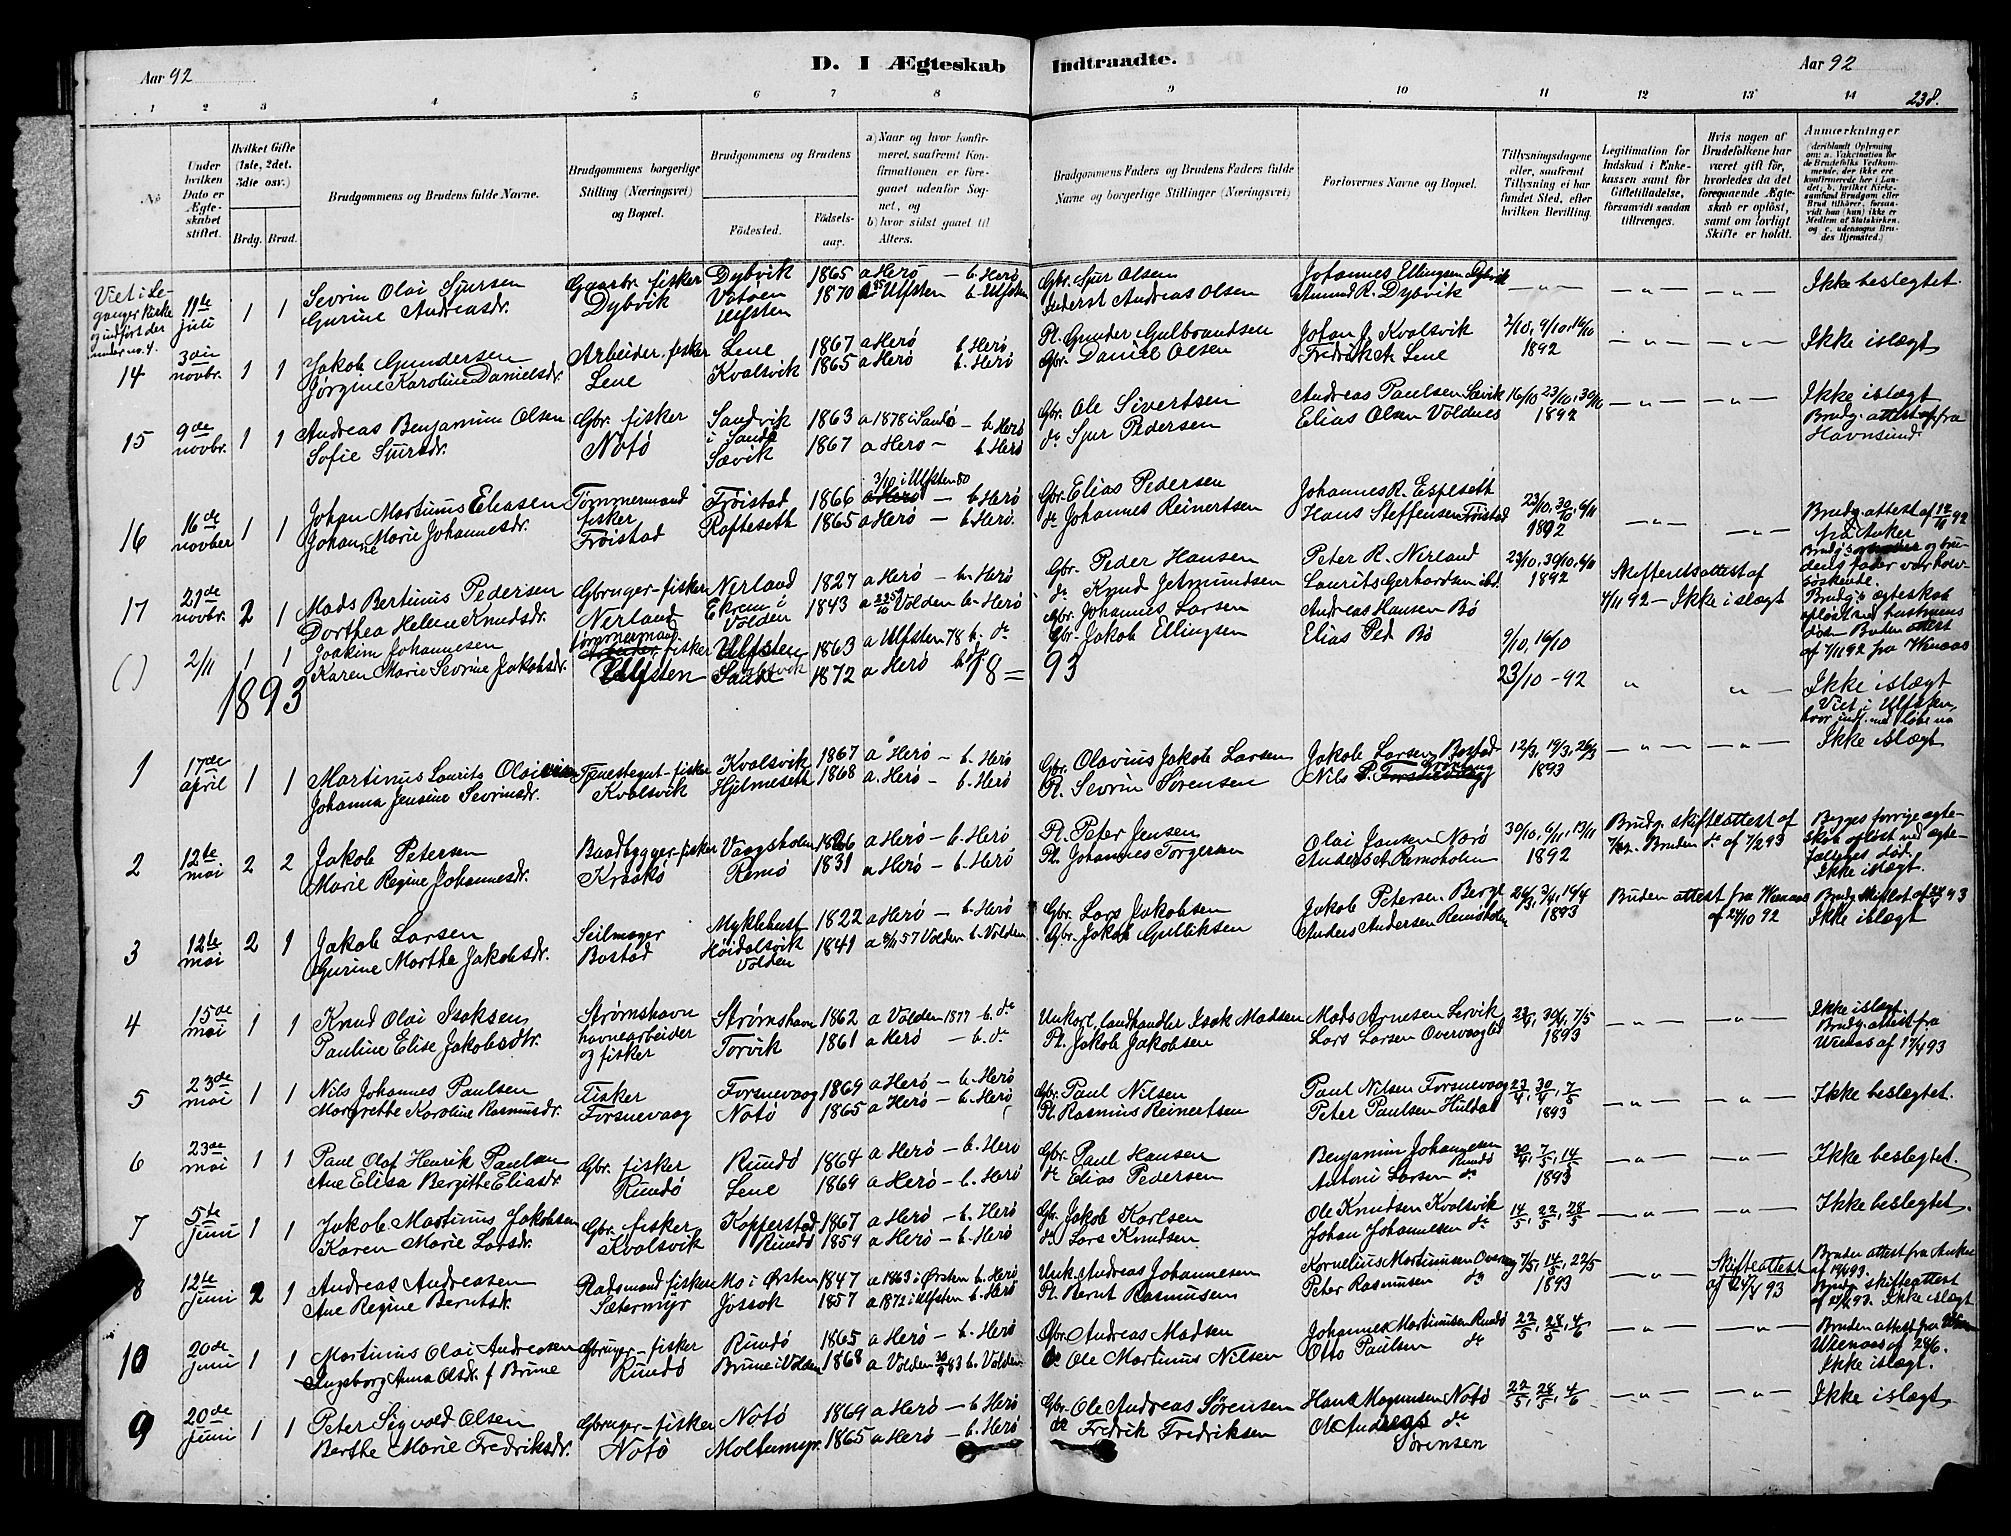 Aar 92
D. I Ægteskab
Indtraadte.
Aar 92
238.
1 2 3 4 5 6 7 8 9 10 11 12 13 14
No
Under hvilken Dato er Ægteskabet stiftet.
Hvilket Gifte (1ste, 2det, 3die osv.)
Brdg. Brud.
Brudgommens og Brudens fulde Navne.
Brudgommens borgerlige Stilling (Næringsvei) og Bopæl.
Brudgommens og Brudens
Födested.
Födselsaar.
a) Naar og hvor konfirmeret, saafremt Konfirmationen er foregaaet udenför Sognet, og
b) hvor sidst gaaet til Alters.
Brudgommens Faders og Brudens Faders fulde Navne og borgerlige Stillinger (Næringsvei)
Forlovernes Navne og Bopæl.
Tillysningsdagene eller, saafremt Tillysning ei har fundet Sted, efter hvilken Bevilling.
Legitimation for Indskud i Enkekassen samt for Giftetilladelse, forsaavidt saadan tiltrænges.
Hvis nogen af Brudefolkene har været gift för, hvorledes da det foregaaende Ægteskab er oplöst, samt om lovligt Skifte er holdt.
Anmærkninger (deriblandt Oplysning om: a. Vakcination for de Brudefolks Vedkommende, der ikke ere konfirmerede her i Landet, b. hvilket Kirkesamfund Brudgom eller Brud tilhörer, forsaavidt han (hun) ikke er Medlem af Statskirken, og c. udensogns Brudes Hjemsted.)
Viet i Leganger Kirke og indført der under no. 4.
11te juli 1 1 Sevrin Olai Sjursen Gaardbr. fisker Dybvik 1865 a Herö — b. Herö Gbr. Sjur Olsen Johannes Ellingsen Dybvik — „ — — „ — — „ — Ikke beslegtet.
Gurine Andreasdr. Dybvik Ulfsten 1870 a 85 Ulfsten b. Ulfsten Inderst Andreas Olsen Amund R. Dybvik
14 3die novbr. 1 1 Jakob Gundersen Arbeider. fisker Lene 1867 a Herö b. Herö Pl. Gunder Gulbrandsen Johan J. Kvalsvik 2/10, 9/10, 16/10 — „ — — „ — Ikke islægt
Jørgine Karoline Danielsdr. Lene Kvalsvik 1865 a Herö b. Herö Gbr. Daniel Olsen Fredrik A. Lene 1892
15 9de novbr. 1 1 Andreas Benjamin Olsen Gbr. fisker Sandvik i Sandö 1863 a 1878 i Sandö — b. Herö Gbr. Ole Sivertsen Andreas Paulsen Sævik 16/10 23/10, 30/10 — „ — — „ — Ikke islægt
Sofie Sjursdr. Notö Sævik 1867 a Herö — b. Herö do Sjur Pedersen Elias Olsen Voldnes 1892 Brudg. attest fra Havnsund.
16 16de novber 1 1 Johan Martinus Eliasen Tømmermand fisker Frøistad 1866 3/10 i Ulfsten 80 a Herö — b. Herö Gbr. Elias Pedersen Johannes R. Espeseth 23/10, 30/10, 6/11 — „ — — „ — Brudg. attest af 12/10 92 fra Anker
Johanne Marie Johannesdr. Frøistad Rafteseth 1865 a Herö — b. Herö. do Johannes Reinertsen Hans Steffensen Frøistad 1892
17 21de novbr. 2 1 Mads Bertinus Pedersen Gbruger-fisker Nerland 1827 a Herö — b. Herö Gbr. Peder Hansen Peter R. Nerland 23/10, 30/10, 6/11 Skifterets attest af
Dorthea Helene Knudsdr. Nerland Ekrem i Volden 1843 a Volden b. Herö do Knud Jetmundsen Laurits Gerhardsen ibd. 1892 4/11 92 — Ikke i slægt
Brudg's ægteskab opløst ved hustruens død. Bruden attest af 7/11 92 fra Wenaas
( ) 2/11 1 1 Joakim Johannesen Tømmermand fisker Ulfsten 1863 a Ulfsten 78 b. do Gbr. Johannes Larsen Andreas Hansen Bö 9/10, 16/10
Karen Marie Sevrine Jakobsdr. Ulfsten Sandsvik 1872 a Herö b. do Gbr. Jakob Ellingsen Elias Ped. Bö 23/10 – 92 „ „ — Ikke islægt
Viet i Ulfsten,
1893 18 = 93
1 17de april 1 1 Martinus Laurits Olaivsen Tjenestegut-fisker Kvalsvik 1867 a Herö — b. Herö Gbr. Olavius Jakob Larsen Jakob Larsen Bostad 12/3, 19/3, 26/3 — „ — — „ — Ikke islægt
Johanna Jensine Sevrinsdr. Kvalsvik Hjelmeseth 1868 a. Herö — b. Herö Pl. Sevrin Sørensen Nils 1893
2 12te mai 2 2 Jakob Petersen Baadbygger-fisker Vaagsholm 1826 a Herö — b. Herö Pl. Peter Jensen Olai Jansen Norö 30/10, 6/11, 13/11 Brudg. skifteattest af
Marie Regine Johannesdr. Kraakö Remö 1831 a Herö — b. Herö Pl. Johannes Torgersen Anders A. Remöholm 1892 Bruden do af 7/2 93
Begges forrige ægteskab opløst ved ægtefælleges død. Ikke islægt.
3 12te mai 2 1 Jakob Larsen Seilmager Myklebust 1822 a Herö — b. Herö Gbr. Lars Jakobsen Jakob Petersen Berge 26/3, 3/4, 14/4 Bruden attest fra Wenaas af 27/10 92
Gurine Marthe Jakobsdr. Bostad Höidalsvik Volden 1841 a 8/11 57 Volden b. Volden Gbr. Jakob Gulliksen Anders Andersen Remöholm 1893 Ikke islægt
4 15de mai 1 1 Knud Olai Isaksen Strømshavn havnearbeider og fisker Strømshavn 1862 a Volden 1877 — b. do Unkarl, landhandler Isak Madsen Mads Arnesen Lervik 23/4, 30/4, 7/5 — „ — — „ — Ikke islægt
Pauline Elise Jakobsdtr. Torvik 1861 a Herö — b. do Pl. Jakob Jakobsen Lars Larsen Overvaagld 1893 Brudg. attest fra Wenaas af 17/4 93
5 23de mai 1 1 Nils Johannes Paulsen Fisker Forsnevaag 1869 a Herö — b. Herö Gbr. Paul Nilsen Paul Nilsen Forsnevaag 23/4, 30/4, 7/5 — „ — — „ — Ikke beslegtet.
Margrethe Karoline Rasmusdr. Forsnevaag Notö 1865 a Herö — b. Herö Pl. Rasmus Reinertsen Peter Paulsen Huldal 1893
6 23de mai 1 1 Paul Olaf Henrik Paulsen Gbr. fisker Rundö 1864 a Herö — b. Herö Gbr. Paul Hansen Benjamin Johannesen Rundö 30/4, 7/5, 14/5 — „ — — „ — Ikke beslegtet.
Ane Elisa Bergitte Eliasdr. Rundö Lene 1869 a Herö — b. Herö do Elias Pedersen Antoni Larsen do 1893
7 5te juni 1 1 Jakob Martinus Jakobsen Gbr. fisker Kopperstad 1867 a Herö — b. Herö Gb. Jakob Karlsen Ole Knudsen Kvalsvik 14/5, 22/5, 28/5 — „ — — „ — Ikke beslegtet.
Karen Marie Larsdr. Kvalsvik Rundö 1859 a Herö — b. Herö do Lars Knudsen Johan Johannesen do
8 12te juni 2 1 Andreas Andreasen Pladsmand fisker Mo i Ørsten 1847 a 1863 i Ørsten b. Herö Unk. Andreas Johannesen Kornelius Martinusen 7/5, 14/5, 22/5 — „ — Skifteattest af 24/4 93
Ane Regine Berntsdr. Sætermyr Jøssok 1857 a 1872 i Ulfsten b. Herö Pl. Bernt Rasmusen Peter Rasmusen do 1893 Bruden attest fra Anker af 19/4 93. Brudg. skifteattest af 24/4 93. Ikke islægt
10 20de juni 1 1 Martinus Olai Andreasen Gbruger — fisker Rundö 1865 a Herö — b. Herö Gbr. Andreas Madsen Johannes Martinusen Rundö 22/5, 28/5, 4/6 — „ — — „ — Bruden attest fra
Ingeborg Anna Olsdr. f Brune Rundö Brune i Volden 1868 a Volden 83 b. Volden do Ole Martinus Nilsen Otto Paulsen do Wienaas af 24/6. Ikke islægt.
9 20de juni 1 1 Peter Sigvald Olsen Gbruger-fisker Notö 1869 a Herö — b. Herö Gbr. Ole Andreas Sørensen Hans Magnusen Notö 22/5, 28/5, 4/6 — „ — — „ — Ikke islægt
Berthe Marie Fredriksdr. Notö Moltumyr 1865 a Herö — b. Herö do Fredrik Fredriksen Ole Andreas do Sørensen